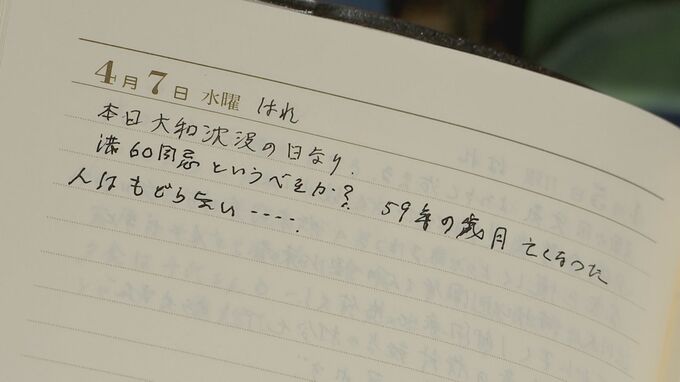 4月7日 水曜 はれ
本日大和沈没の日なり.
満60周忌というべきか? 59年の歳月 亡くなった
人はもどらない ‥‥.